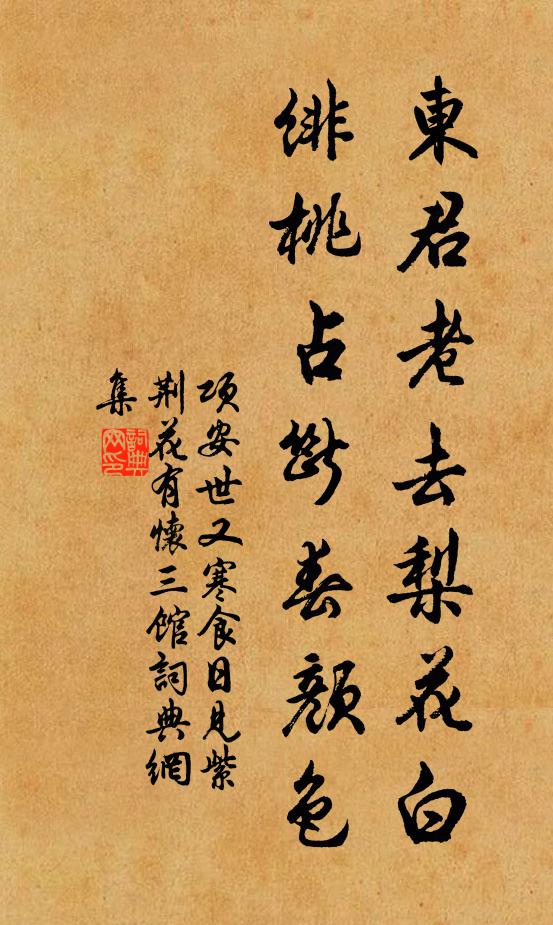 東君老去梨花白
緋桃占斷春顏色
項安世又寒食日見紫
荆花有懷三館詞典網
集
詞典
网印